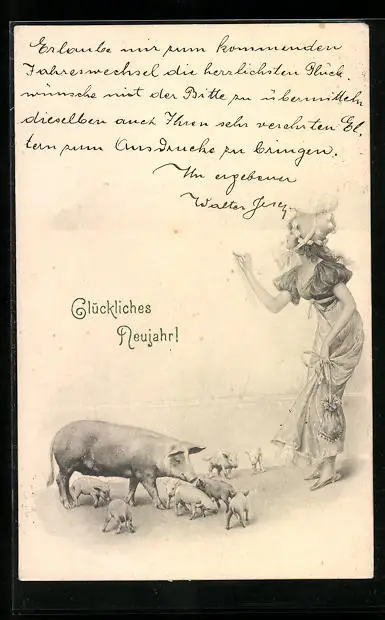 Erlaube mir zum kommenden
Jahreswechsel die herrlichsten Glück-
wünsche mit der Bitte zu übermitteln
dieselben auch Ihren sehr verehrten El-
tern zum Ausdrucke zu bringen.
Ihr ergebener
Walter
Glückliches
Neujahr!